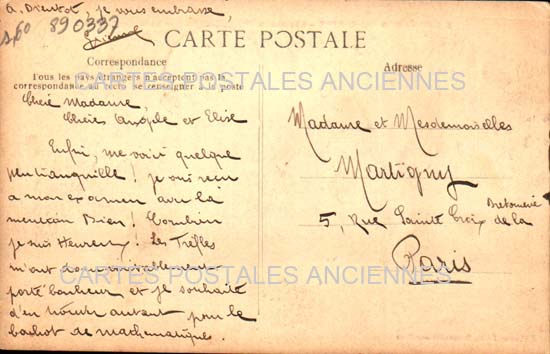 A Bientôt, je vous embrasse,
890337
CARTE POSTALE
Correspondance
Tous les pays étrangers n'acceptent pas la
correspondance au recto se renseigner à la poste
Adresse
CARTES POSTALES ANCIENNES
Chère Madame,
Chères et Elise
Enfin, me voici quelque
peu tranquille ! je suis reçu
à mon examen avec la
mention Bien ! Combien
je suis Heureux ! Les Trèfles
m'ont donc
porté bonheur et je souhaite
d'en autant pour le
bachot de mathématiques.
Madame et Mesdemoiselles
Martigny
5, Rue Sainte Croix de la
Bretonnerie
Paris
CARTES POSTALES ANCIENNES